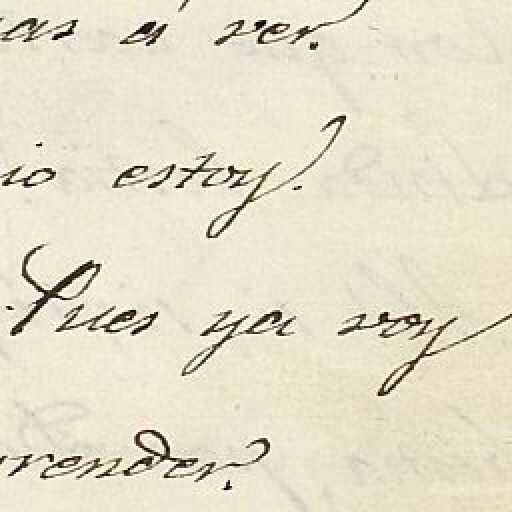 as á ver.
io estoy.
Pues ya voy
render.